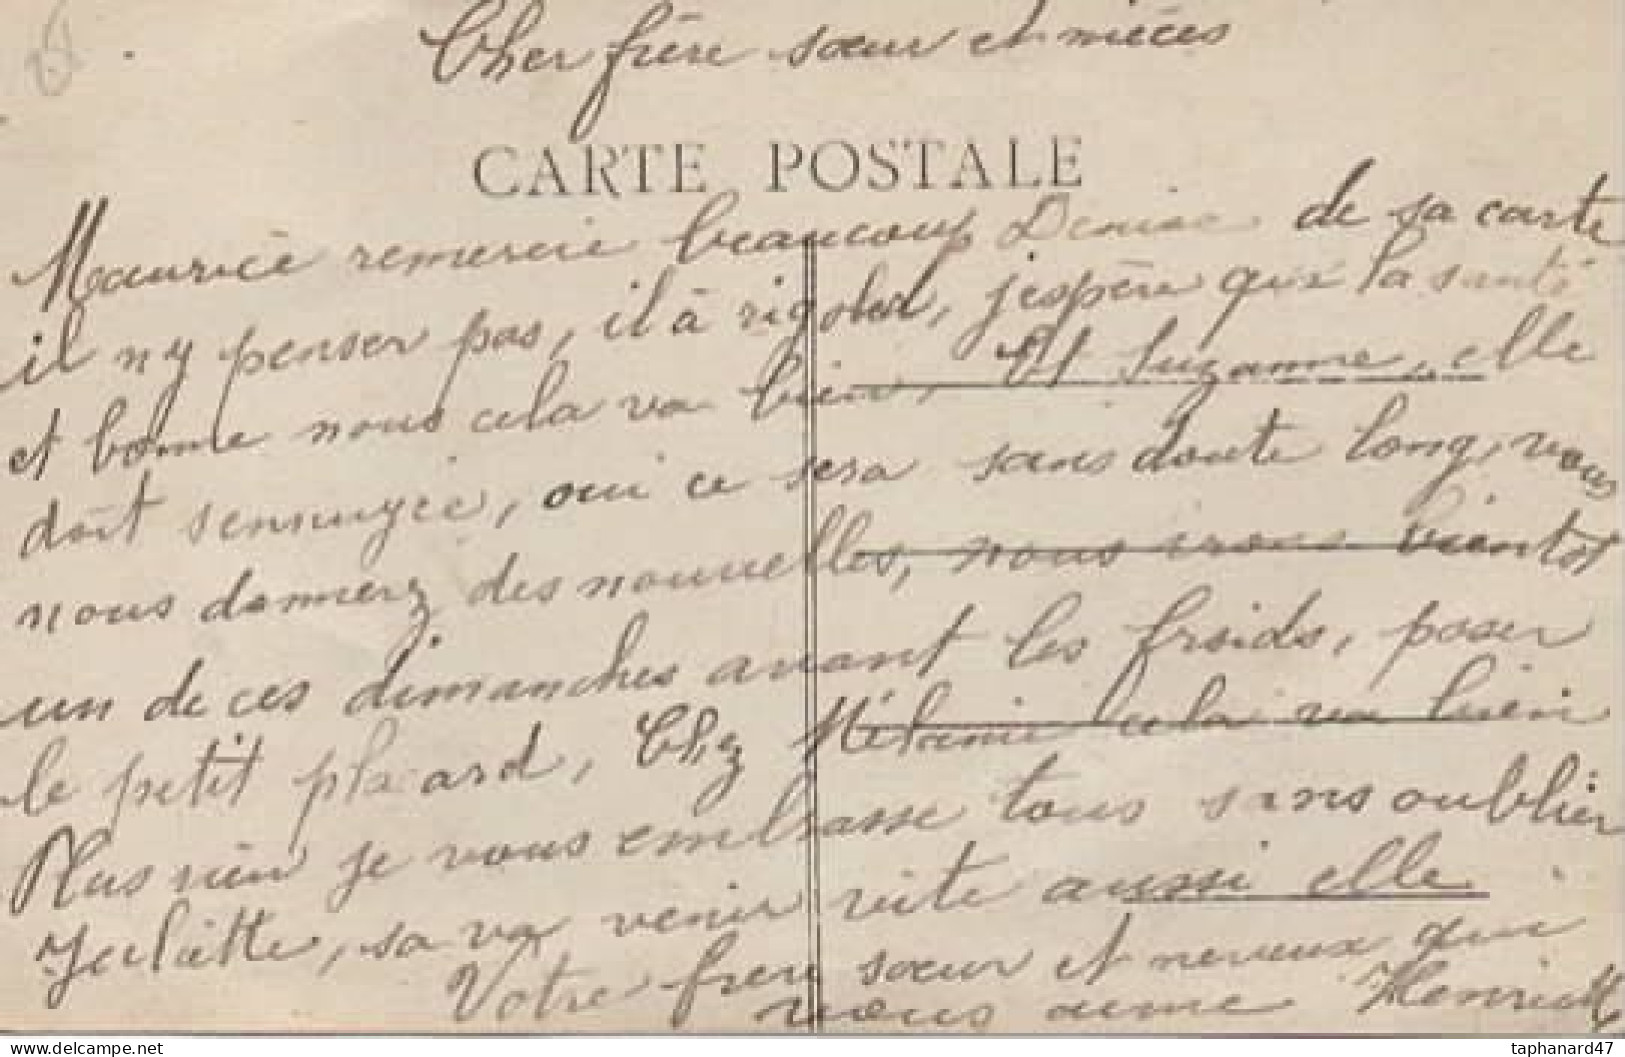 Cher frère sœur et nièces
CARTE POSTALE
Maurice remercie beaucoup Denise de sa carte
il ny penser pas, il à rigoler, jespère que la santé
et bonne nous cela va bien, Et Suzanne, elle
doit sennuyée, oui ce sera sans doute long, vous
nous donnerz des nouvelles, nous irons bientôt
un de ces dimanches avant les froids, poser
le petit placard, Chez Mélanie cela va bien
Plus rien je vous embrasse tous sans oublier
Juliette, sa va venir vite aussi elle
Votre frere sœur et neveux qui
vous aime Henriette
taphanard47